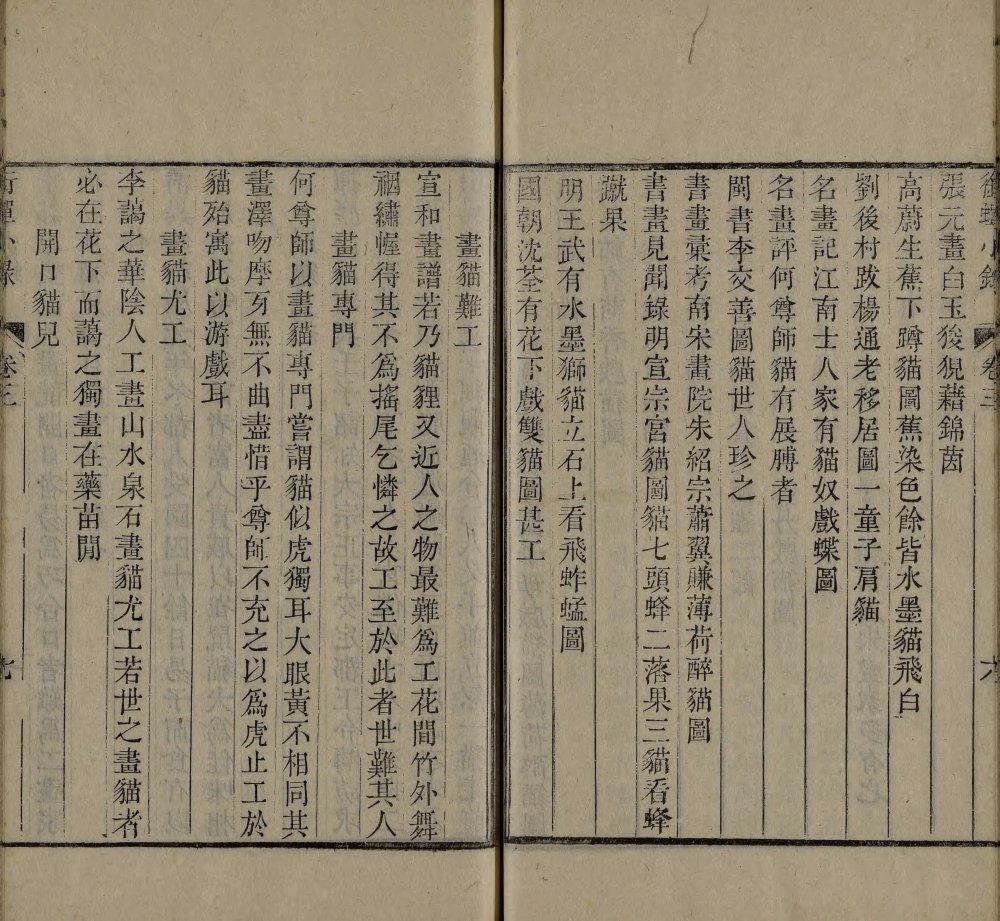 銜蟬小錄
卷三
六
張元畫白玉狻猊藉錦茵
高蔚生蕉下蹲貓圖蕉染色餘皆水墨貓飛白
劉後村跋楊通老移居圖一童子肩貓
名畫記江南士人家有貓奴戲蝶圖
名畫評何尊師貓有展膊者
閩書李交善圖貓世人珍之
書畫彙考南宋畫院朱紹宗蕭翼賺薄荷醉貓圖
書畫見聞錄明宣宗宮貓圖貓七頭蜂二落果三貓看蜂
蹴果
明王武有水墨獅貓立石上看飛蚱蜢圖
國朝沈荃有花下戲雙貓圖甚工
畫貓難工
宣和畫譜若乃貓貍又近人之物最難爲工花間竹外舞
裀繡幄得其不爲搖尾乞憐之故工至於此者世難其人
畫貓專門
何尊師以畫貓專門嘗謂貓似虎獨耳大眼黃不相同其
畫澤吻摩牙無不曲盡惜乎尊師不充之以爲虎止工於
貓殆寓此以游戲耳
畫貓尤工
李藹之華陰人工畫山水泉石畫貓尤工若世之畫貓者
必在花下而藹之獨畫在藥苗閒
開口貓兒
銜蟬小錄
卷三
七